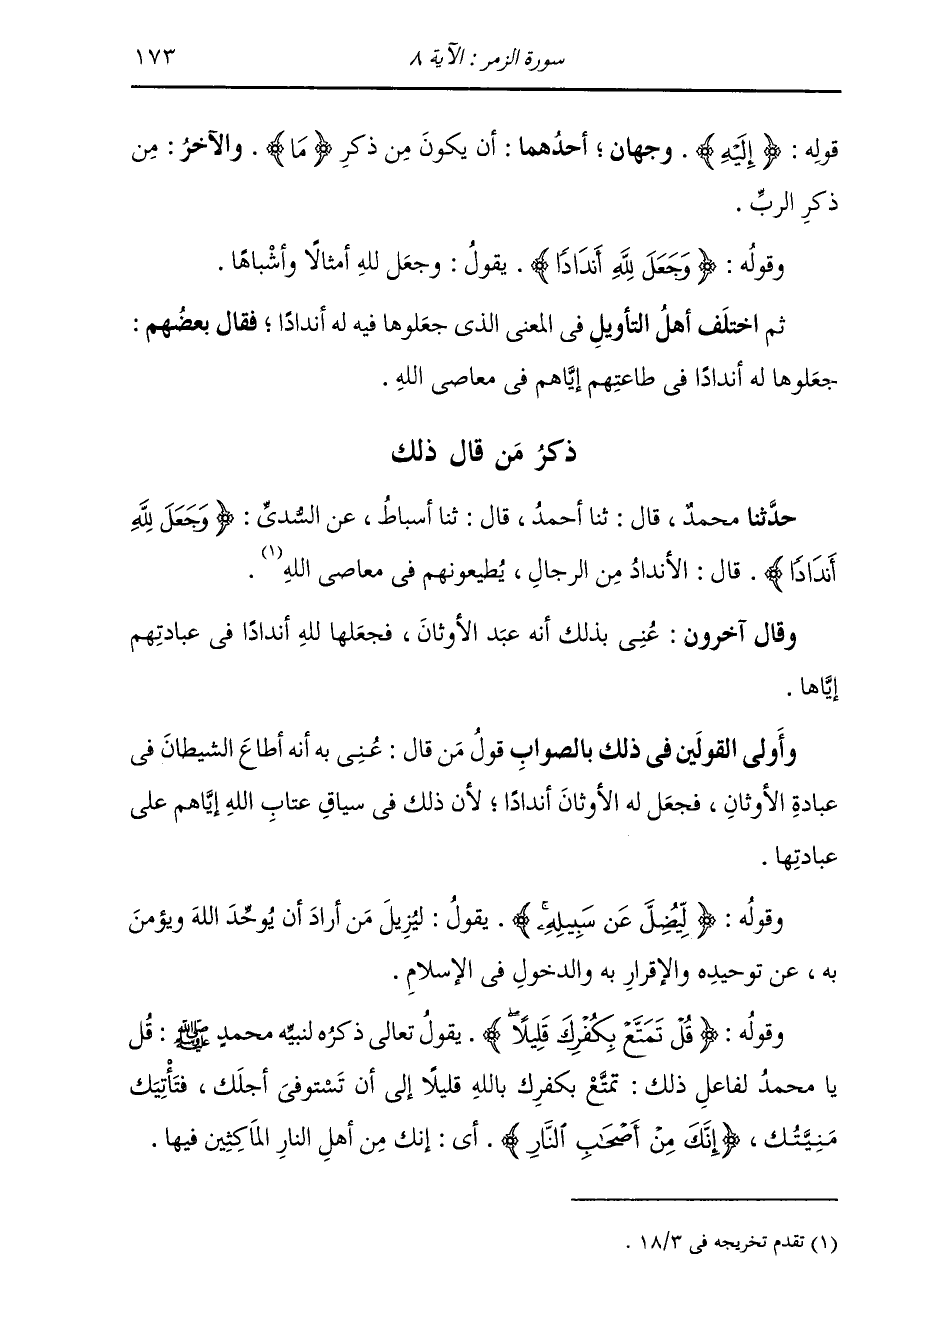 سورة الزمر : الآية ٨
١٧٣
قولِه : ﴿ إِلَيْهِ ﴾ . وجهان ؛ أحدُهما : أن يكونَ مِن ذكرِ ﴿ مَا ﴾ . والآخرُ : مِن
ذكرِ الربِّ .
وقولُه : ﴿ وَجَعَلَ لِلَّهِ أَندَادًا ﴾ . يقولُ : وجعَل للهِ أمثالًا وأشْباهًا .
ثم اختلَف أهلُ التأويلِ فى المعنى الذى جعَلوها فيه له أندادًا ؛ فقال بعضُهم :
جعَلوها له أندادًا فى طاعتِهم إيَّاهم فى معاصى اللهِ .
ذكرُ مَن قال ذلك
حدَّثنا محمدٌ ، قال : ثنا أحمدُ ، قال : ثنا أسباطُ ، عن السُّدىِّ : ﴿ وَجَعَلَ لِلَّهِ
أَندَادًا ﴾ . قال : الأندادُ مِن الرجالِ ، يُطيعونهم فى معاصى اللهِ(١) .
وقال آخرون : عُنِى بذلك أنه عبَد الأوثانَ ، فجعَلها للهِ أندادًا فى عبادتِهم
إيَّاها .
وأَولى القولَين فى ذلك بالصوابِ قولُ مَن قال : عُنِى به أنه أطاعَ الشيطانَ فى
عبادةِ الأوثانِ ، فجعَل له الأوثانَ أندادًا ؛ لأن ذلك فى سياقِ عتابِ اللهِ إيَّاهم على
عبادتِها .
وقولُه : ﴿ لِّيُضِلَّ عَن سَبِيلِهِۦۚ ﴾ . يقولُ : ليُزِيلَ مَن أرادَ أن يُوحِّدَ اللهَ ويؤمنَ
به ، عن توحيدِه والإقرارِ به والدخولِ فى الإسلامِ .
وقولُه : ﴿ قُلْ تَمَتَّعْ بِكُفْرِكَ قَلِيلًاۖ ﴾ . يقولُ تعالى ذكرُه لنبيِّه محمدٍ ﷺ : قُل
يا محمدُ لفاعلِ ذلك : تمتَّعْ بكفرِك باللهِ قليلًا إلى أن تَسْتوفىَ أجلَك ، فتَأْتِيَك
مَنِيَّتُك ، ﴿ إِنَّكَ مِنْ أَصْحَٰبِ ٱلنَّارِ ﴾ . أى : إنك مِن أهلِ النارِ الماَكِثِين فيها .
(١) تقدم تخريجه فى ١٨/٣ .